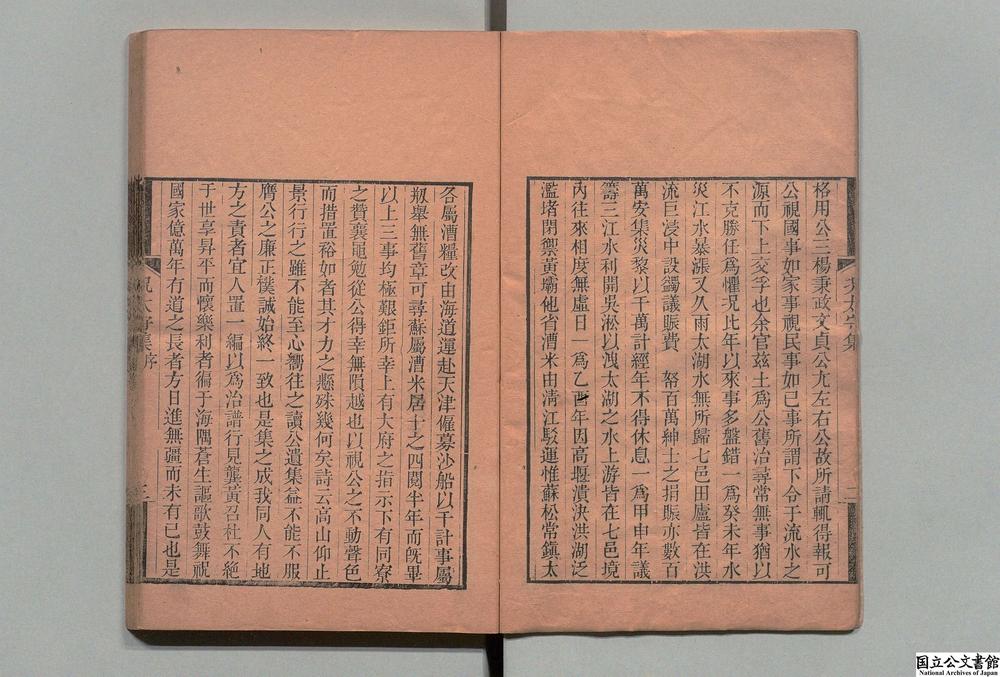 格用公三楊秉政文貞公尤左右公故所請輒得報可
公視國事如家事視民事如己事所謂下令于流水之
源而下上交孚也余官茲土爲公舊治尋常無事猶以
不克勝任爲懼况比年以來事多盤錯一爲癸未年水
災江水暴漲又久雨太湖水無所歸七邑田廬皆在洪
流巨浸中設蠲議賑費帑百萬紳士之捐賑亦數百
萬安集災黎以千萬計經年不得休息一爲甲申年議
籌三江水利開吳淞以洩太湖之水上游皆在七邑境
內往來相度無虛日一爲乙酉年因高堰潰決洪湖泛
濫堵閉禦黃壩他省漕米由清江駁運惟蘇松常鎭太
各屬漕糧改由海道運赴天津僱募沙船以千計事屬
剏舉無舊章可尋蘇屬漕米居十之四閱半年而旣畢
以上三事均極艱鉅所幸上有大府之指示下有同寮
之贊襄黽勉從公得幸無隕越也以視公之不動聲色
而措置裕如者其才力之懸殊幾何矣詩云高山仰止
景行行之雖不能至心嚮往之讀公遺集益不能不服
膺公之廉正樸誠始終一致也是集之成我同人有地
方之責者宜人置一編以爲治譜行見龔黃召杜不絕
于世享昇平而懷樂利者徧于海隅蒼生謳歌鼓舞祝
國家億萬年有道之長者方日進無疆而未有已也是
况太守集
序
二
三
国立公文書館
National Archives of Japan